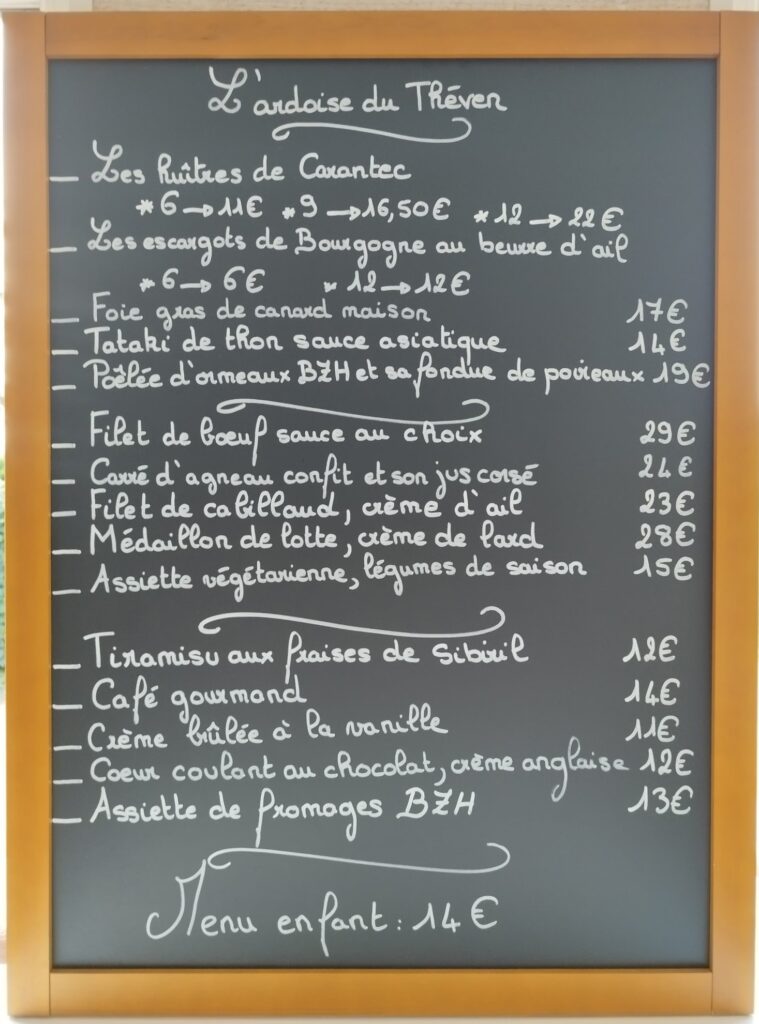 L'ardoise du Théven
_ Les huîtres de Carantec
* 6 → 11€ * 9 → 16,50€ * 12 → 22€
_ Les escargots de Bourgogne au beurre d'ail
* 6 → 6€ * 12 → 12€
_ Foie gras de canard maison 17€
_ Tataki de thon sauce asiatique 14€
_ Poêlée d'ormeaux BZH et sa fondue de poireaux 19€
_ Filet de bœuf sauce au choix 29€
_ Carré d'agneau confit et son jus corsé 24€
_ Filet de cabillaud, crème d'ail 23€
_ Médaillon de lotte, crème de lard 28€
_ Assiette végétarienne, légumes de saison 15€
_ Tiramisu aux fraises de Sibiril 12€
_ Café gourmand 14€
_ Crème brûlée à la vanille 11€
_ Coeur coulant au chocolat, crème anglaise 12€
_ Assiette de fromages BZH 13€
Menu enfant : 14€